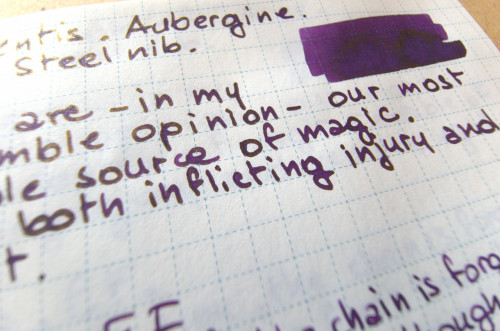 entis. Aubergine.
Steel nib.
are - in my
mble opinion - our most
le source of magic.
both inflicting injury and
t.
EF
chain is forg
ough